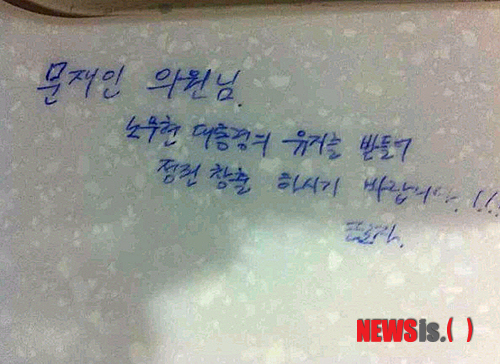 문재인 의원님.
노무현 대통령의 유지를 받들어
정권 창출 하시기 바랍니다.!!!
NEWSis.( )